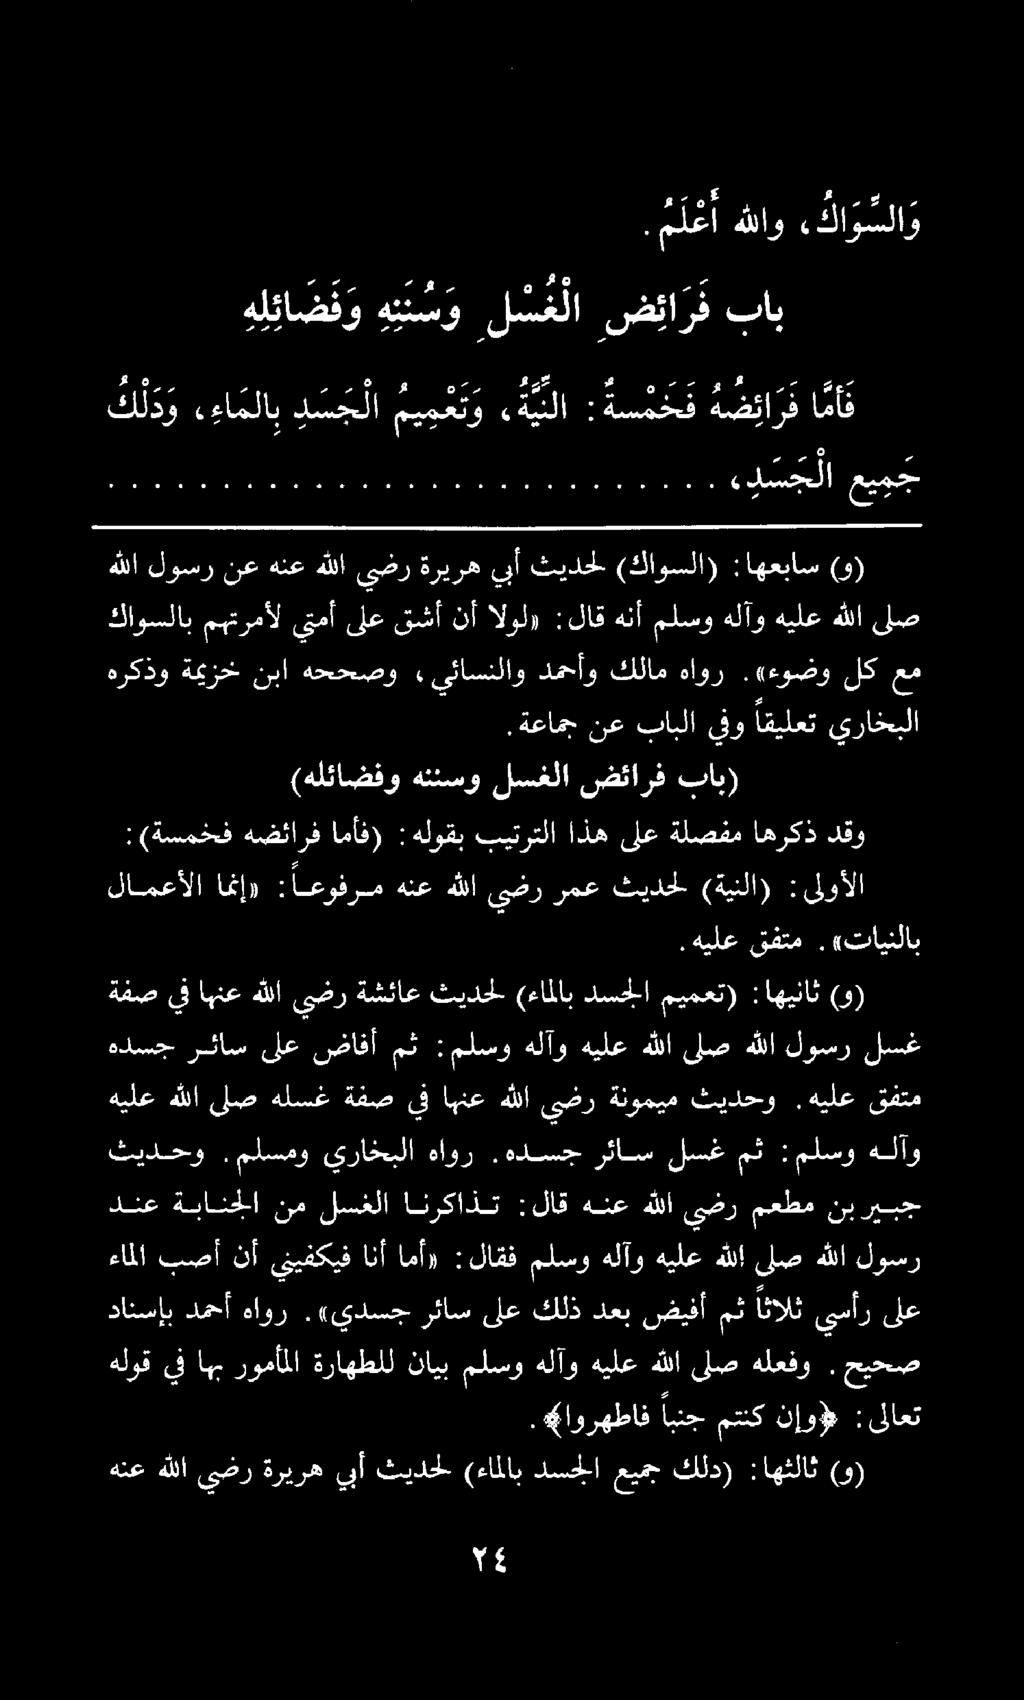 وَالسِّوَاكُ، والله أَعْلَمُ.
باب فَرَائِضِ الْغُسْلِ وَسُنَنِهِ وَفَضَائِلِهِ
فَأَمَّا فَرَائِضُهُ فَخَمْسةٌ: النِّيَّةُ، وَتَعْمِيمُ الْجَسَدِ بِالمَاءِ، وَدَلْكُ
جَمِيعِ الْجَسَدِ، . . . . . . . . . . . . . . . . . . . . . . . . . . .
(و) سابعها: (السواك) لحديث أبي هريرة رضي الله عنه عن رسول الله
صلى الله عليه وآله وسلم أنه قال: «لولا أن أشق على أمتي لأمرتهم بالسواك
مع كل وضوء». رواه مالك وأحمد والنسائي، وصححه ابن خزيمة وذكره
البخاري تعليقاً وفي الباب عن جماعة.
(باب فرائض الغسل وسننه وفضائله)
وقد ذكرها مفصلة على هذا الترتيب بقوله: (فأما فرائضه فخمسة):
الأولى: (النية) لحديث عمر رضي الله عنه مرفوعاً: «إنما الأعمال
بالنيات». متفق عليه.
(و) ثانيها: (تعميم الجسد بالماء) لحديث عائشة رضي الله عنها في صفة
غسل رسول الله صلى الله عليه وآله وسلم: ثم أفاض على سائر جسده
متفق عليه. وحديث ميمونة رضي الله عنها في صفة غسله صلى الله عليه
وآله وسلم: ثم غسل سائر جسده. رواه البخاري ومسلم. وحديث
جبير بن مطعم رضي الله عنه قال: تذاكرنا الغسل من الجنابة عند
رسول الله صلى الله عليه وآله وسلم فقال: «أما أنا فيكفيني أن أصب الماء
على رأسي ثلاثاً ثم أفيض بعد ذلك على سائر جسدي». رواه أحمد بإسناد
صحيح. وفعله صلى الله عليه وآله وسلم بيان للطهارة المأمور بها في قوله
تعالى: ﴿وإن كنتم جنباً فاطهروا﴾.
(و) ثالثها: (دلك جميع الجسد بالماء) لحديث أبي هريرة رضي الله عنه
٢٤